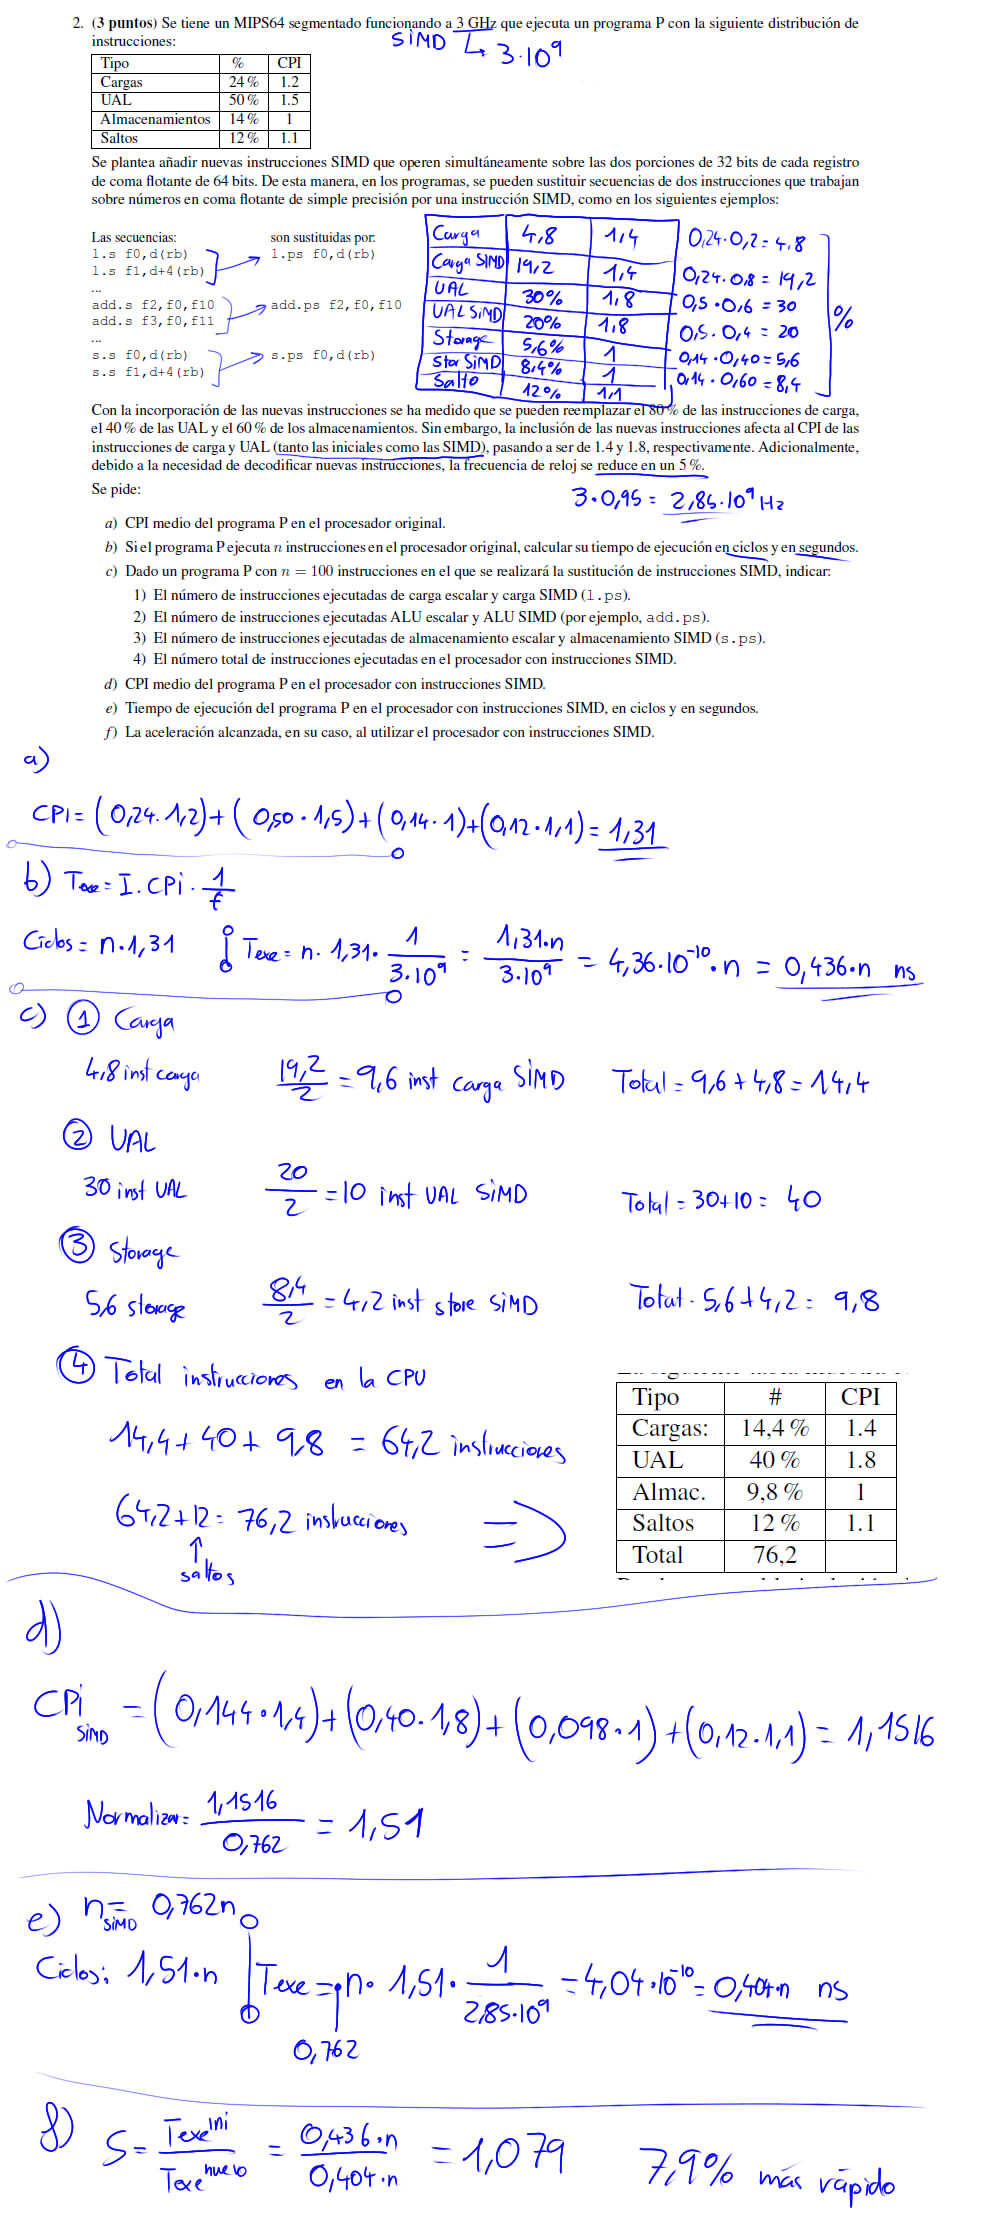 2. (3 puntos) Se tiene un MIPS64 segmentado funcionando a 3 GHz que ejecuta un programa P con la siguiente distribución de
instrucciones:
SiMD ↳ 3·10⁹
Tipo % CPI
Cargas 24 % 1.2
UAL 50 % 1.5
Almacenamientos 14 % 1
Saltos 12 % 1.1
Se plantea añadir nuevas instrucciones SIMD que operen simultáneamente sobre las dos porciones de 32 bits de cada registro
de coma flotante de 64 bits. De esta manera, en los programas, se pueden sustituir secuencias de dos instrucciones que trabajan
sobre números en coma flotante de simple precisión por una instrucción SIMD, como en los siguientes ejemplos:
Las secuencias: son sustituidas por:
l.s f0,d(rb) l.ps f0,d(rb)
l.s f1,d+4(rb)
...
add.s f2,f0,f10 add.ps f2,f0,f10
add.s f3,f0,f11
...
s.s f0,d(rb) s.ps f0,d(rb)
s.s f1,d+4(rb)
Carga 4,8 1,4 0,24·0,2 = 4,8
Carga SIMD 19,2 1,4 0,24·0,8 = 19,2
UAL 30% 1,8 0,5·0,6 = 30
UAL SiMD 20% 1,8 0,5·0,4 = 20
Storage 5,6% 1 0,14·0,40=5,6
Stor SiMD 8,4% 1 0,14·0,60=8,4
Salto 12% 1,1
%
Con la incorporación de las nuevas instrucciones se ha medido que se pueden reemplazar el 80 % de las instrucciones de carga,
el 40 % de las UAL y el 60 % de los almacenamientos. Sin embargo, la inclusión de las nuevas instrucciones afecta al CPI de las
instrucciones de carga y UAL (tanto las iniciales como las SIMD), pasando a ser de 1.4 y 1.8, respectivamente. Adicionalmente,
debido a la necesidad de decodificar nuevas instrucciones, la frecuencia de reloj se reduce en un 5 %.
Se pide:
3·0,95 = 2,85·10⁹ Hz
a) CPI medio del programa P en el procesador original.
b) Si el programa P ejecuta n instrucciones en el procesador original, calcular su tiempo de ejecución en ciclos y en segundos.
c) Dado un programa P con n = 100 instrucciones en el que se realizará la sustitución de instrucciones SIMD, indicar:
1) El número de instrucciones ejecutadas de carga escalar y carga SIMD (l.ps).
2) El número de instrucciones ejecutadas ALU escalar y ALU SIMD (por ejemplo, add.ps).
3) El número de instrucciones ejecutadas de almacenamiento escalar y almacenamiento SIMD (s.ps).
4) El número total de instrucciones ejecutadas en el procesador con instrucciones SIMD.
d) CPI medio del programa P en el procesador con instrucciones SIMD.
e) Tiempo de ejecución del programa P en el procesador con instrucciones SIMD, en ciclos y en segundos.
f) La aceleración alcanzada, en su caso, al utilizar el procesador con instrucciones SIMD.
a)
CPI = (0,24·1,2)+(0,50·1,5)+(0,14·1)+(0,12·1,1) = 1,31
b) Texe = I·CPi·1/f
Ciclos = n·1,31 Texe = n·1,31·1/3·10⁹ = 1,31·n/3·10⁹ = 4,36·10⁻¹⁰·n = 0,436·n ns
c) ① Carga
4,8 inst carga 19,2/2 = 9,6 inst carga SiMD Total = 9,6+4,8 = 14,4
② UAL
30 inst UAL 20/2 = 10 inst UAL SiMD Total = 30+10 = 40
③ Storage
5,6 storage 8,4/2 = 4,2 inst store SiMD Total = 5,6+4,2 = 9,8
④ Total instrucciones en la CPU
14,4 + 40 + 9,8 = 64,2 instrucciones
64,2+12 = 76,2 instrucciones ⇒
↑
saltos
Tipo # CPI
Cargas: 14,4 % 1.4
UAL 40 % 1.8
Almac. 9,8 % 1
Saltos 12 % 1.1
Total 76,2
d)
CPi SiMD = (0,144·1,4)+(0,40·1,8)+(0,098·1)+(0,12·1,1) = 1,1516
Normalizar = 1,1516/0,762 = 1,51
e) n SiMD = 0,762n
Ciclos: 1,51·n Texe = n·1,51·1/2,85·10⁹ = 4,04·10⁻¹⁰ = 0,404·n ns
0,762
f) S = Texe ini/Texe nuevo = 0,436·n/0,404·n = 1,079 7,9% más rápido